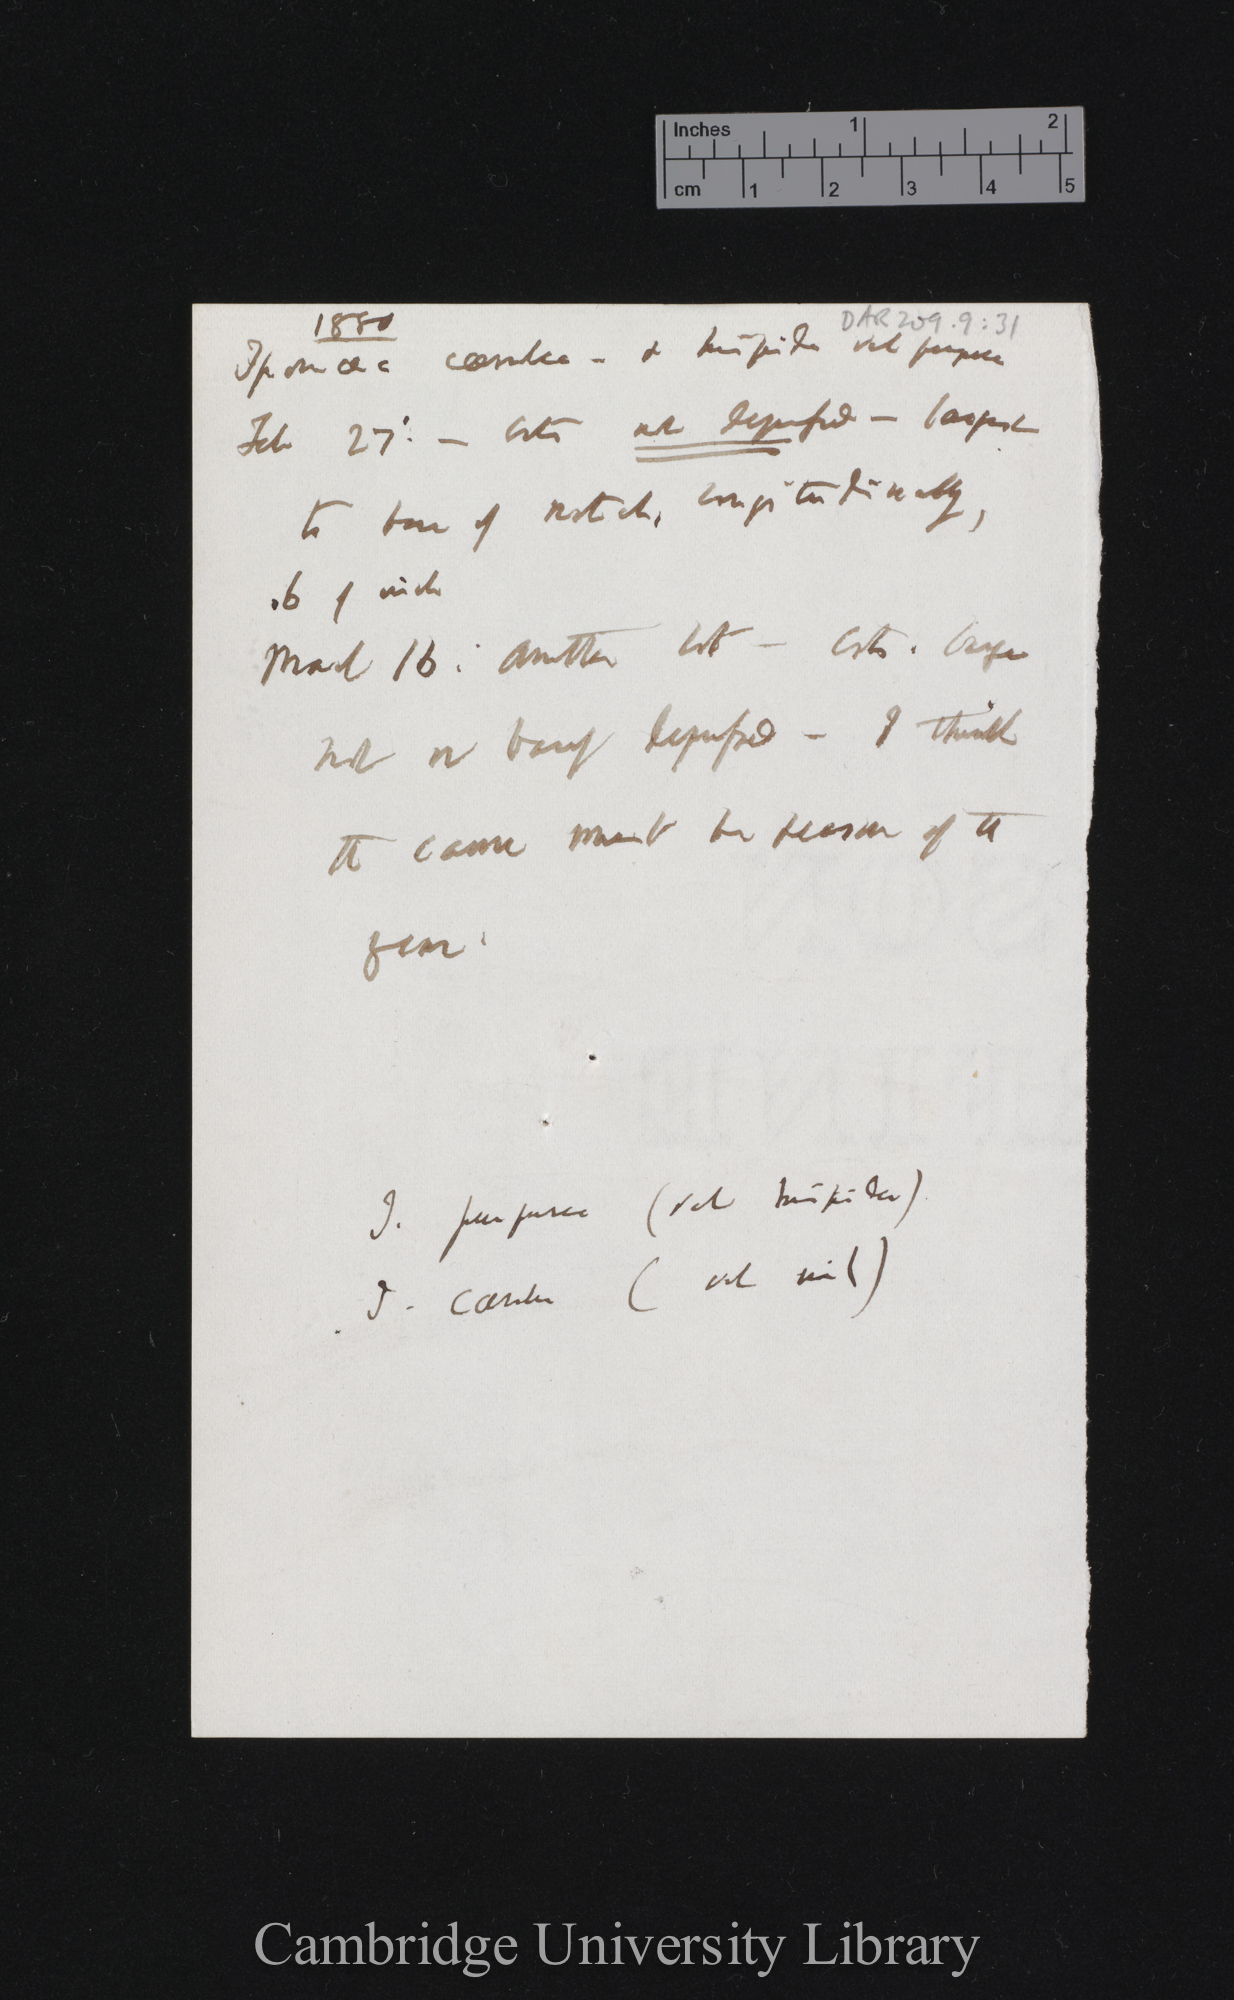 Inches 1 2
cm 1 2 3 4 5
1880
DAR 209.9:31
Ipomœa cœrulea — & hispida vel purpurea
Feb 27: — Cots not depressed — largest
to base of notch, longitudinally,
.6 of inch
March 16: Another lot — Cots. large
not or barely depressed — I think
the cause must be season of the
year.
I. purpurea (vel hispida).
I. cœrulea (vel nil)
Cambridge University Library